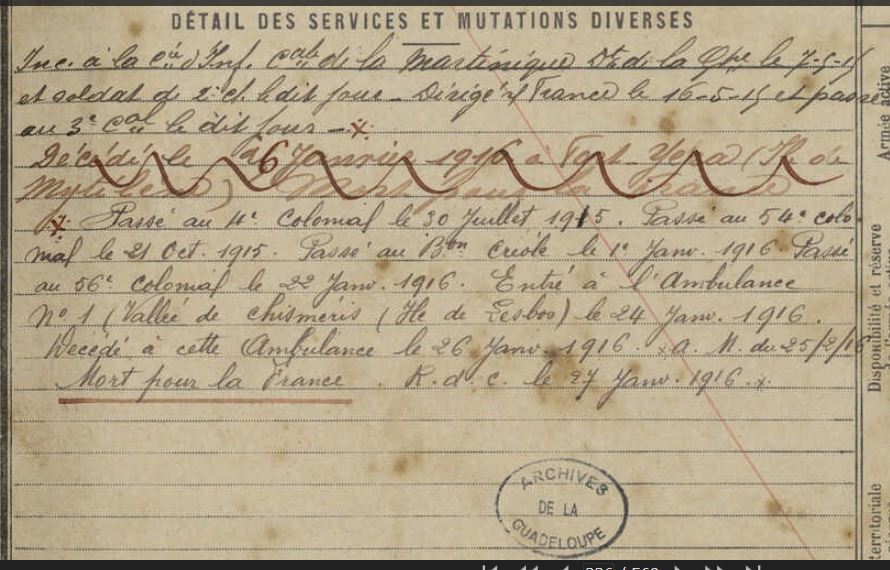 DÉTAIL DES SERVICES ET MUTATIONS DIVERSES
Inc. à la Cie d'Inf. Cale de la Martinique Dt de la Gpe le 7-5-15
et soldat de 2e cl. le dit jour - Dirigé s/ France le 16-5-15 et passé
au 3e Cal le dit jour - x
Décédé le 26 Janvier 1916 à Port-Yera (Ile de
Mytilène) Mort pour la France
x Passé au 4e Colonial le 30 Juillet 1915. Passé au 54e colo-
nial le 21 Oct. 1915. Passé au Bon créole le 1er Janv. 1916 Passé
au 56e colonial le 22 Janv. 1916. Entré à l'Ambulance
No 1 (Vallée de Chisméris (Ile de Lesbos) le 24 Janv. 1916.
Décédé à cette Ambulance le 26 Janv. 1916. A. M. du 25/2/16
Mort pour la France. R. d. c. le 27 Janv. 1916. x
ARCHIVES
DE LA
GUADELOUPE
Armée active
Disponibilité et réserve
territoriale